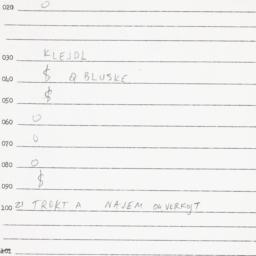 020 0
030 KLEJDL
040 $ a BLUSKE
050 $
060 0
070 0
080 0
090 $
100 21 TROKT A NAJEM OQ VERKOJT